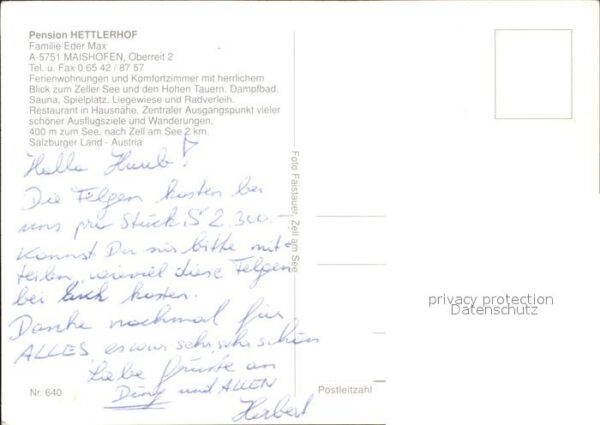 Pension HETTLERHOF
Familie Eder Max
A-5751 MAISHOFEN, Oberreit 2
Tel. u. Fax 0 65 42 / 87 57
Ferienwohnungen und Komfortzimmer mit herrlichem
Blick zum Zeller See und den Hohen Tauern. Dampfbad,
Sauna, Spielplatz, Liegewiese und Radverleih.
Restaurant in Hausnähe. Zentraler Ausgangspunkt vieler
schöner Ausflugsziele und Wanderungen,
400 m zum See, nach Zell am See 2 km.
Salzburger Land - Austria
Hallo !
Die Felgen kosten bei
uns pro Stück S 2.300.-
Kannst Du mir bitte mit-
teilen, wieviel diese Felgen
bei Euch kosten.
Danke nochmal für
ALLES, es war sehr, sehr schön
Liebe Grüsse an
und ALLEN
Herbert
Nr. 640
Foto Faistauer, Zell am See
Postleitzahl
privacy protection
Datenschutz